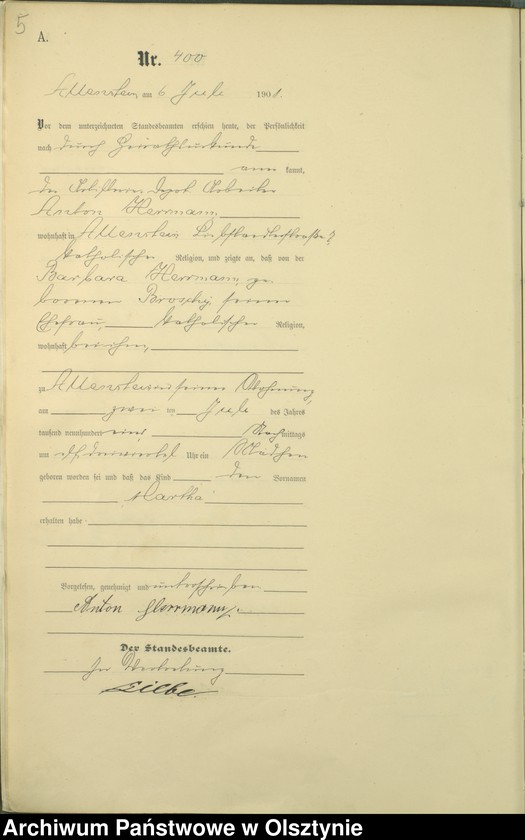 5
A.
Nr. 400
Allenstein, am 6 Juli 1901.
Vor dem unterzeichneten Standesbeamten erschien heute, der Persönlichkeit
nach durch Heirathsurkunde
kannt,
der Depot Arbeiter
Anton Herrmann,
wohnhaft in Allenstein
katholischer Religion, und zeigte an, daß von der
Barbara Herrmann, ge
borenen seiner
Ehefrau, katholischer Religion,
wohnhaft bei ihm,
zu Allenstein in seiner Wohnung,
am zwei ten Juli des Jahres
tausend neunhundert eins Nachmittags
um Uhr ein Mädchen
geboren worden sei und daß das Kind den Vornamen
Martha
erhalten habe
Vorgelesen, genehmigt und unterschrieben
Anton Herrmann.
Der Standesbeamte.
In Vertretung
Archiwum Państwowe w Olsztynie